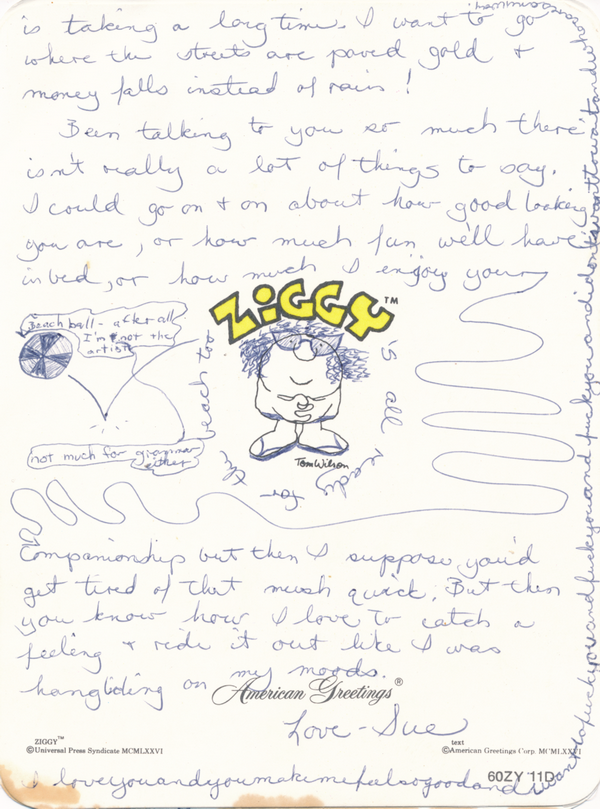 is taking a long time. I want to go
where the streets are paved gold &
money falls instead of rain!
Been talking to you so much there
isn't really a lot of things to say.
I could go on & on about how good looking
you are, or how much fun we'll have
in bed, or how much I enjoy your
ZiGGY™
Beach ball - after all
I'm not the
artist
not much for grammar
either
is all ready
for the
beach
Tom Wilson
Companionship but then I suppose you'd
get tired of that mush quick. But then
you know how I love to catch a
feeling & ride it out like I was
hangliding on my moods.
American Greetings®
Love - Sue
ZIGGY™
©Universal Press Syndicate MCMLXXVI
text
©American Greetings Corp. MCMLXXVI
60ZY 11D
I loveyouandyoumakemefeelsogoodandiwanttofuckyouandfuckyouandfuckyouandfuckyouandidontwanttowait